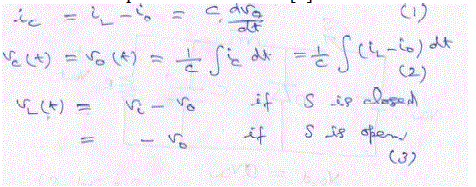 i_c = i_L - i_o = C dv_o/dt (1)
v_c(t) = v_o(t) = 1/C ∫ i_c dt = 1/C ∫ (i_L - i_o) dt
(2)
v_L(t) = v_i - v_o if S is closed
= - v_o if S is open,
(3)